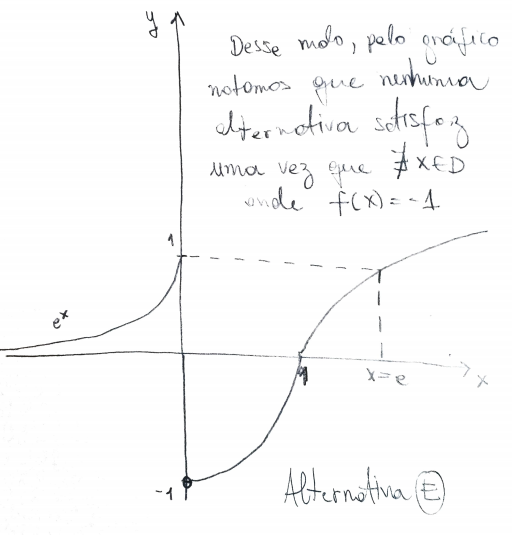 y
Desse modo, pelo gráfico
notamos que nenhuma
alternativa satisfaz
uma vez que ∄ x ∈ D
onde f(x) = -1
1
e^x
1
x = e
x
-1
Alternativa E